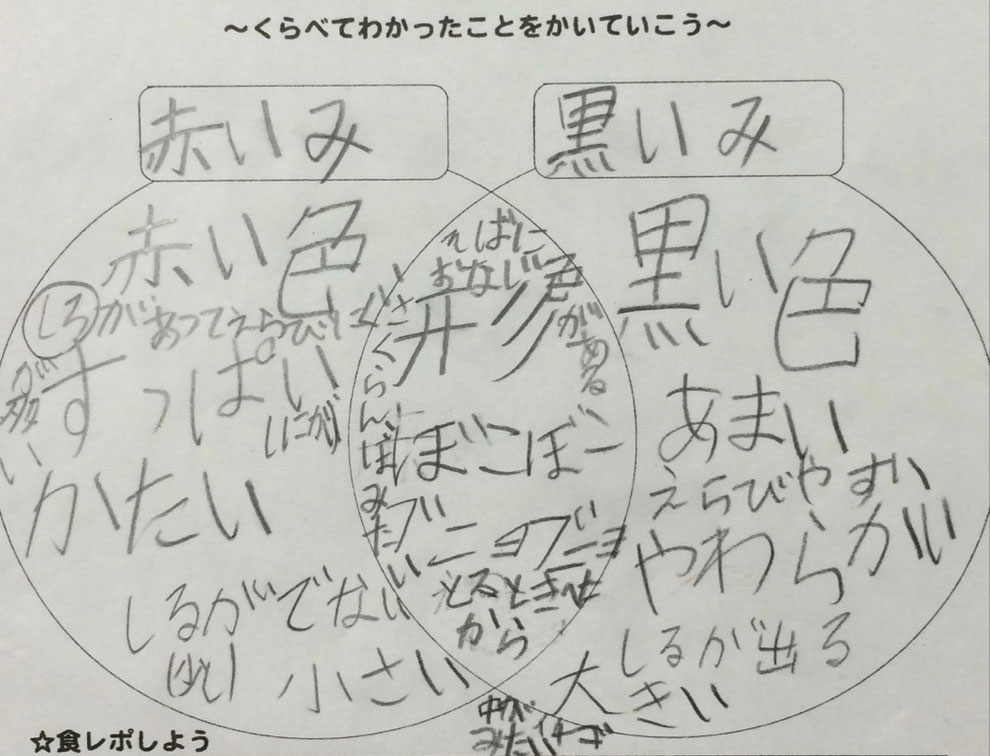 ～くらべてわかったことをかいていこう～
赤いみ
黒いみ
赤い色
しろがあってえらびにくい
すっぱい
にがい
が多い
かたい
しるがでない
小さい
おなじ色がある
形
さくらんぼみたい
ぼこぼこ
ブニョブニョ
とるとき
から
黒い色
あまい
えらびやすい
やわらかい
しるが出る
大きい
中が
みたい
☆食レポしよう